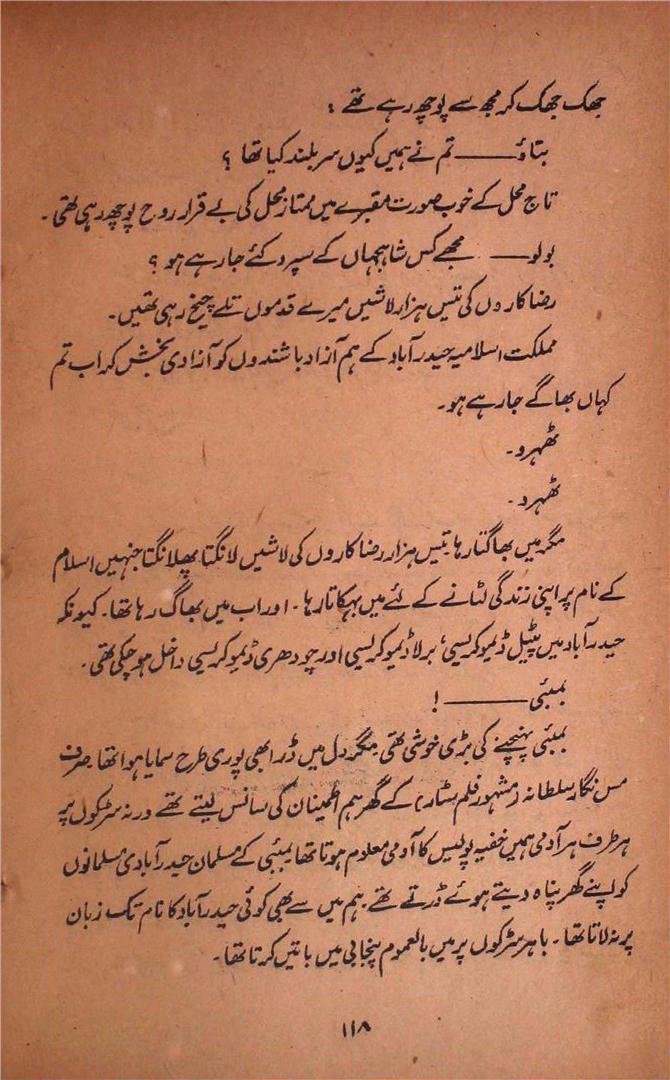 جھک جھک کر مجھ سے پوچھ رہے تھے :
بتاؤ ——— تم نے ہمیں کیوں سربلند کیا تھا ؟
تاج محل کے خوب صورت مقبرے میں ممتاز محل کی بے قرار روح پوچھ رہی تھی ۔
بولو —— مجھے کس شاہجہاں کے سپرد کئے جا رہے ہو ؟
رضا کاروں کی تیس ہزار لاشیں میرے قدموں تلے چیخ رہی تھیں ۔
مملکت اسلامیہ حیدرآباد کے ہم آزاد باشندوں کو آزادی بخش کر اب تم
کہاں بھاگے جا رہے ہو ۔
ٹھہرو ۔
ٹھہرو ۔
مگر میں بھاگتا رہا تیس ہزار رضا کاروں کی لاشیں لانگتا پھلانگتا جنہیں اسلام
کے نام پر اپنی زندگی لٹانے کے لئے میں بہکاتا رہا ۔ اور اب میں بھاگ رہا تھا ۔ کیونکہ
حیدرآباد میں پٹیل ڈیموکریسی ، برلا ڈیموکریسی اور چودھری ڈیموکریسی داخل ہو چکی تھی ۔
بمبئی ———— !
بمبئی پہنچنے کی بڑی خوشی تھی مگر دل میں ڈر ابھی پوری طرح سمایا ہوا تھا صرف
مس نگار سلطانہ (مشہور فلم سٹار) کے گھر ہم اطمینان کی سانس لیتے تھے ورنہ سڑکوں پر
ہر طرف ہر آدمی ہمیں خفیہ پولیس کا آدمی معلوم ہوتا تھا بمبئی کے مسلمان حیدرآبادی مسلمانوں
کو اپنے گھر پناہ دیتے ہوئے ڈرتے تھے ۔ ہم میں سے بھی کوئی حیدرآباد کا نام تک زبان
پر نہ لاتا تھا ۔ باہر سڑکوں پر میں بالعموم پنجابی میں باتیں کرتا تھا ۔
۱۱۸